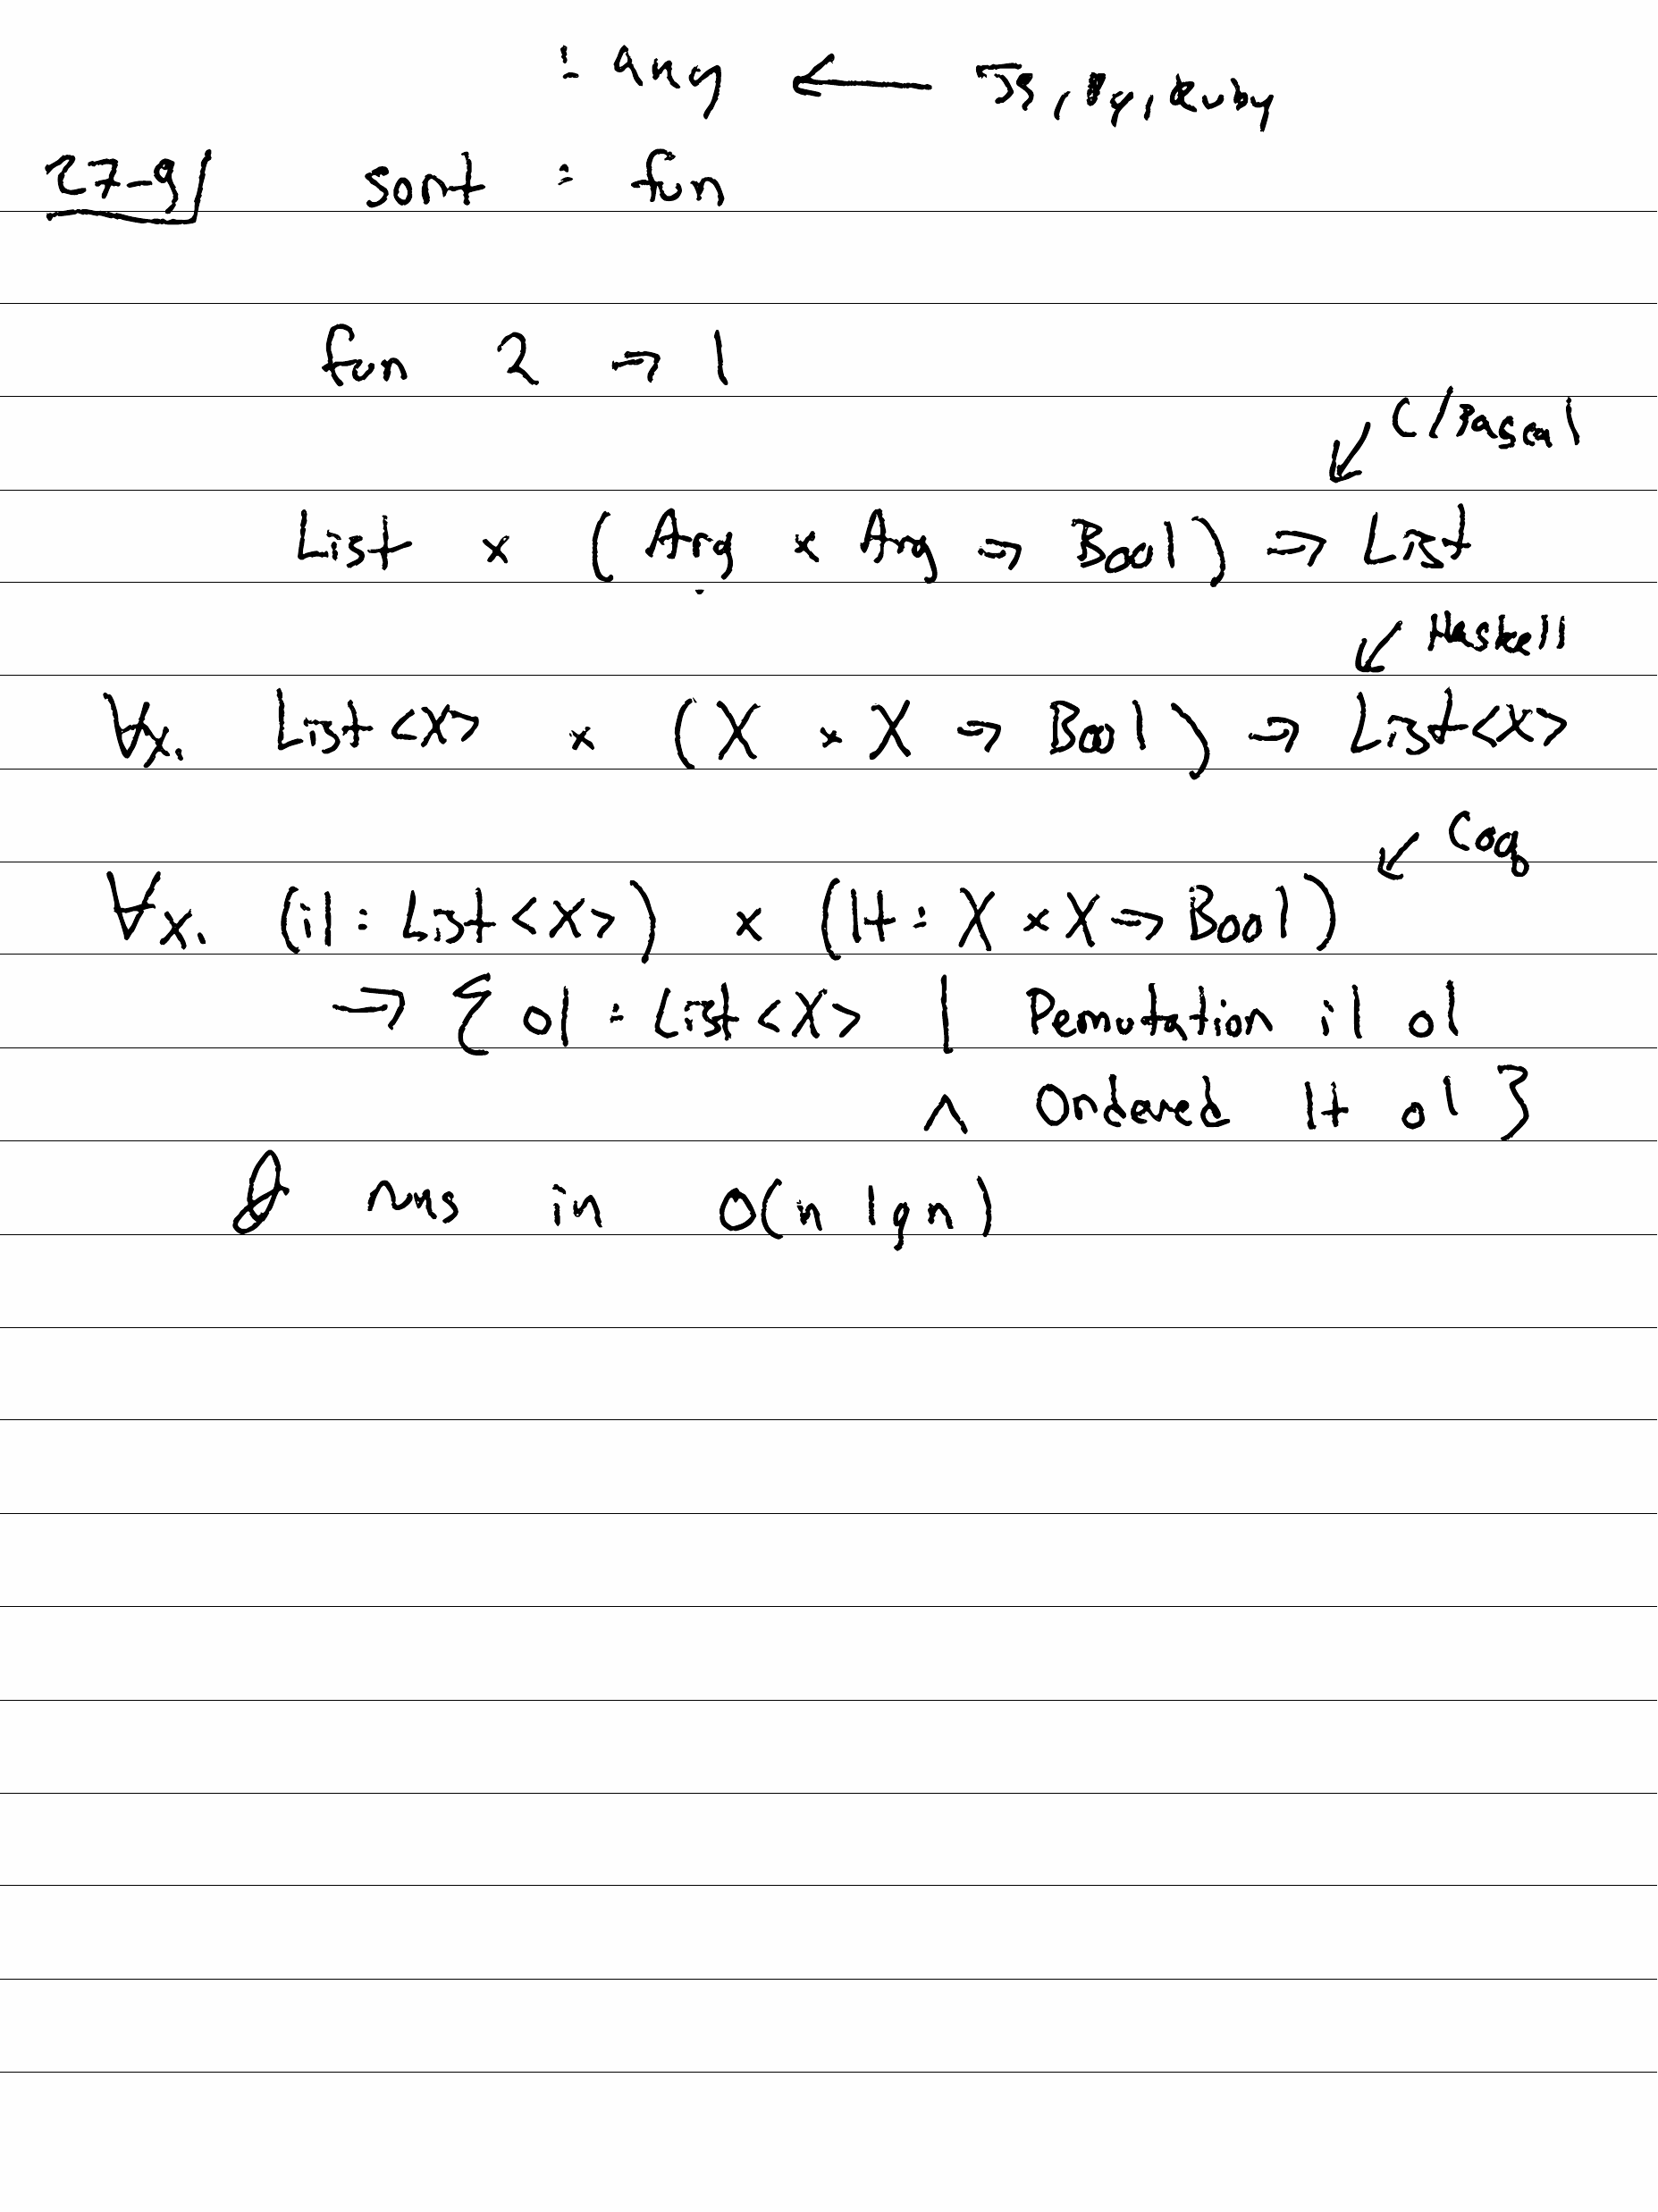 : any ← JS, Py, Ruby
27-9/ sort : fun
fun 2 → 1
↙ C/Pascal
List × (Arg × Arg → Bool) → List
↙ Haskell
∀x. List<X> × (X × X → Bool) → List<X>
↙ Coq
∀x. (il : List<X>) × (lt : X × X → Bool)
→ { ol : List<X> | Permutation il ol
∧ Ordered lt ol }
& runs in O(n lg n)